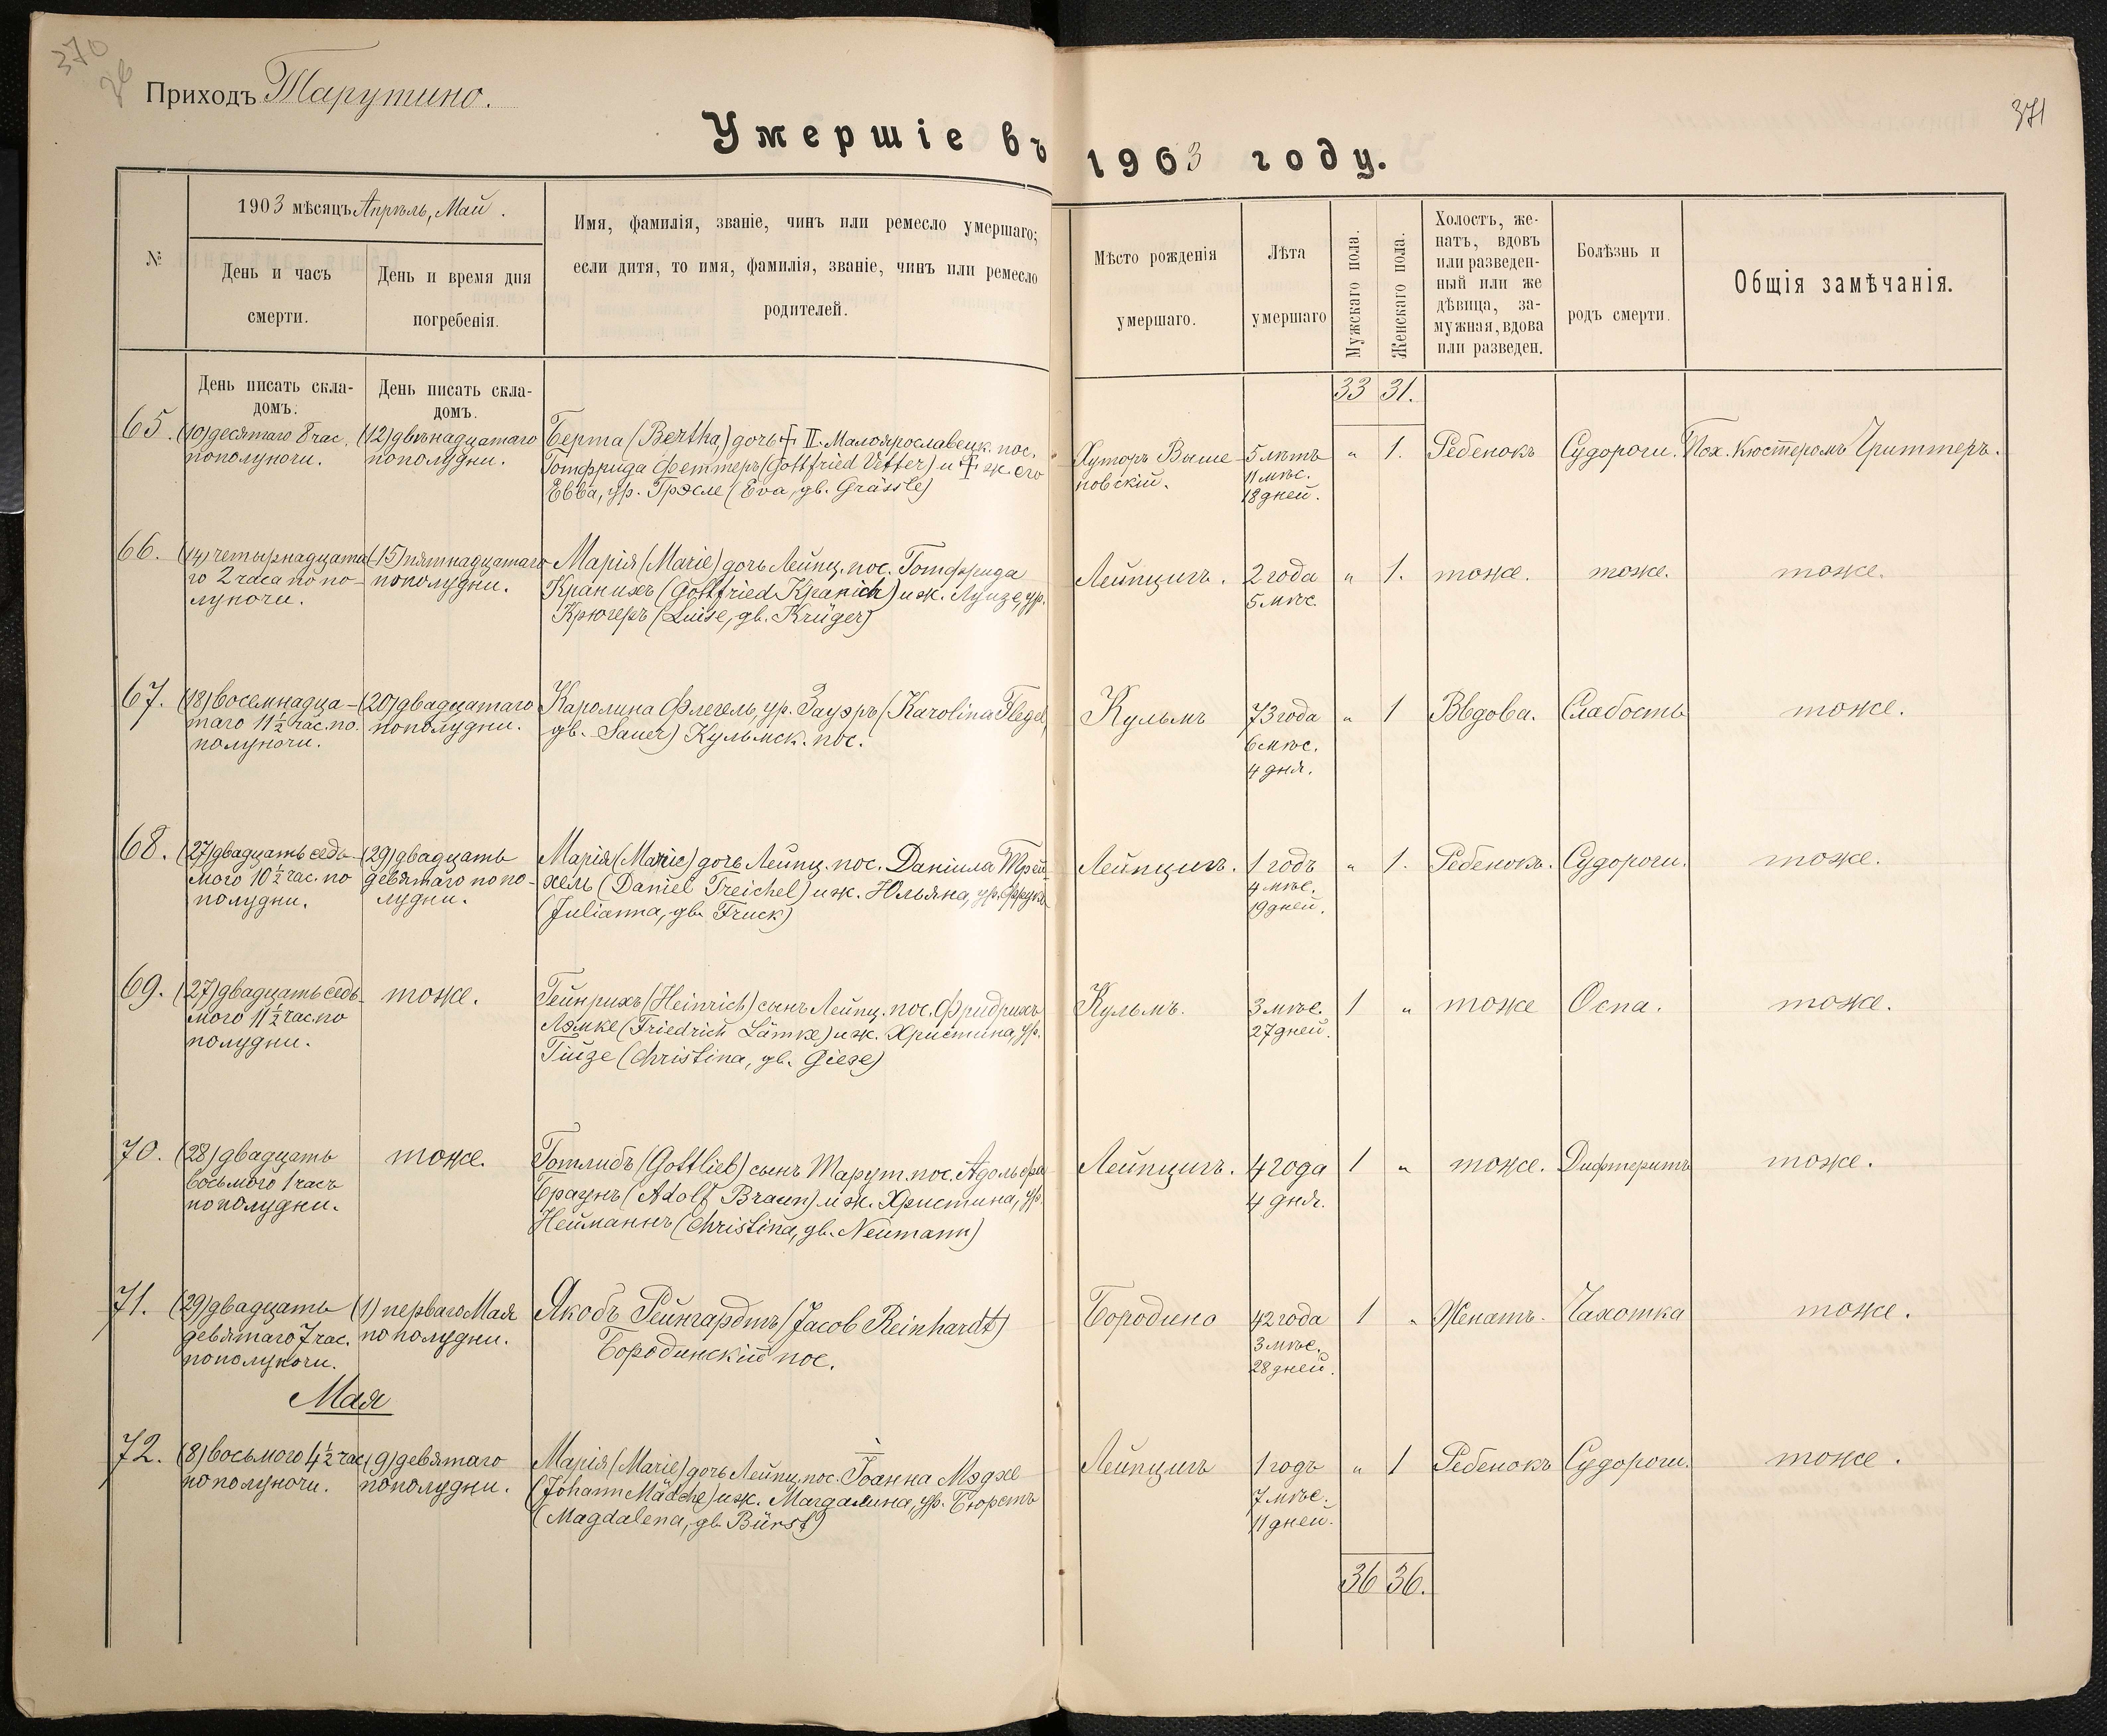 370
Приходъ Тарутино.
371
Умершіе въ 1903 году.
№
1903 мѣсяцъ Апрѣль, Май.
День и часъ
смерти.
День и время дня
погребенія.
Имя, фамилія, званіе, чинъ или ремесло умершаго;
если дитя, то имя, фамилія, званіе, чинъ или ремесло
родителей.
Мѣсто рожденія
умершаго.
Лѣта
умершаго
Мужскаго пола.
Женскаго пола.
Холостъ, же-
натъ, вдовъ
или разведен-
ный или же
дѣвица, за-
мужная, вдова
или разведен.
Болѣзнь и
родъ смерти.
Общія замѣчанія.
День писать скла-
домъ.
День писать скла-
домъ.
33 31.
65.
(10) десятаго 8 час.
пополуночи.
(12) двѣнадцатаго
пополудни.
Берта (Bertha) дочь † II. Малоярославецк. пос.
Готфрида Феттеръ (Gottfried Vetter) и † ж. его
Евва, ур. Грэсле (Eva, gb. Grässle)
Хуторъ Выше-
новскій.
5 лѣтъ
11 мѣс.
18 дней.
" 1.
Ребенокъ
Судороги.
Пох. Кюстеромъ Гриттеръ.
66.
(14) четырнадцата
го 2 часа попо-
луночи.
(15) пятнадцатаго
пополудни.
Марія (Marie) дочь Лейпц. пос. Готфрида
Кранихъ (Gottfried Kranich) и ж. Луизе, ур.
Крюгеръ (Luise, gb. Krüger)
Лейпцигъ.
2 года
5 мѣс.
" 1.
тоже.
тоже.
тоже.
67.
(18) восемнадца-
таго 11½ час. по-
полуночи.
(20) двадцатаго
пополудни.
Каролина Флегель, ур. Зауэръ (Karolina Flegel,
gb. Sauer) Кульмск. пос.
Кульмъ
73 года
6 мѣс.
4 дня.
" 1
Вдова.
Слабость
тоже.
68.
(27) двадцать седь-
мого 10½ час. по
полудни.
(29) двадцать
девятаго попо-
лудни.
Марія (Marie) дочь Лейпц. пос. Даніила Трей-
хель (Daniel Treichel) и ж. Юльяна, ур. Фрукъ
(Julianna, gb. Fruck)
Лейпцигъ.
1 годъ
4 мѣс.
19 дней.
" 1.
Ребенокъ.
Судороги.
тоже.
69.
(27) двадцать седь-
мого 11½ час. по
полудни.
тоже.
Гейнрихъ (Heinrich) сынъ Лейпц. пос. Фридрихъ
Лэмке (Friedrich Lämke) и ж. Христина, ур.
Гизе (Christina, gb. Giese)
Кульмъ.
3 мѣс.
27 дней.
1 "
тоже
Оспа.
тоже.
70.
(28) двадцать
восьмого 1 часъ
пополудни.
тоже.
Готлибъ (Gottlieb) сынъ Тарут. пос. Адольфа
Браунъ (Adolf Braun) и ж. Христина, ур.
Нейманнъ (Christina, gb. Neumann)
Лейпцигъ.
4 года
4 дня.
1 "
тоже.
Дифтеритъ
тоже.
71.
(29) двадцать
девятаго 7 час.
пополуночи.
(1) перваго Мая
пополудни.
Якобъ Рейнгардтъ (Jacob Reinhardt)
Бородинскій пос.
Бородино
42 года
3 мѣс.
28 дней.
1 "
Женатъ.
Чахотка
тоже.
Мая
72.
(8) восьмого 4½ час.
пополуночи.
(9) девятаго
пополудни.
Марія (Marie) дочь Лейпц. пос. Іоанна Мэдхе
(Johann Mädche) и ж. Магдалина, ур. Бюрстъ
(Magdalena, gb. Bürst)
Лейпцигъ
1 годъ
7 мѣс.
11 дней.
" 1
Ребенокъ
Судороги.
тоже.
36 36.